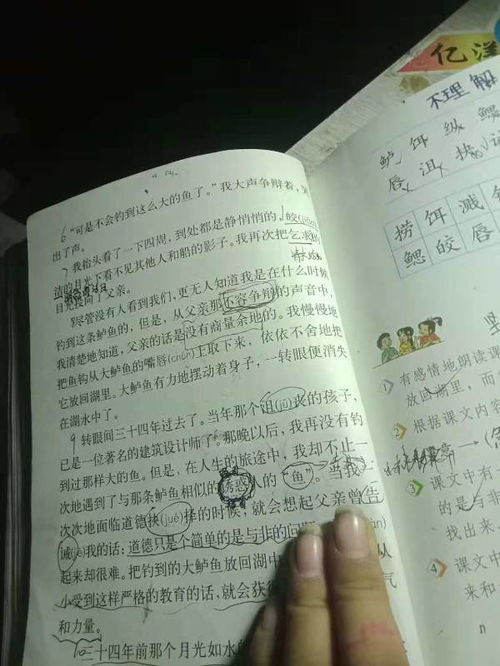 6 "可是不会钓到这么大的鱼了。"我大声争辩着,哭
出了声。
7 我抬头看了一下四周,到处都是静悄悄的,皎(jiǎo)
洁的月光下看不见其他人和船的影子。我再次把乞求的
目光投向了父亲。
8 尽管没有人看到我们,更无人知道我是在什么时候
钓到这条鲈鱼的,但是,从父亲那不容争辩的声音中,
我清楚地知道,父亲的话是没有商量余地的。我慢慢地
把鱼钩从大鲈鱼的嘴唇(chún)上取下来,依依不舍地把
它放回湖里。大鲈鱼有力地摆动着身子,一转眼便消失
在湖水中了。
9 转眼间三十四年过去了。当年那个沮(jǔ)丧的孩子,
已是一位著名的建筑设计师了。那晚以后,我再没有钓
到过那样大的鱼。但是,在人生的旅途中,我却不止一
次地遇到了与那条鲈鱼相似的诱惑人的"鱼"。当我一
次次地面临道德抉(jué)择的时候,就会想起父亲曾告
诫我的话:道德只是个简单的是与非的问题
起来却很难。把钓到的大鲈鱼放回湖中
小受到这样严格的教育的话,就会获得
气
和力量。
三十四年前那个月光如水的
亿洋
不理解
鲈 饵 纵 鳃
唇 沮 抉
捞 饵 溅
鳃 皎 唇
有感情地朗读课
放回湖里,而
根据课文内容
③ 课文中有
的是与非
找出来
④ 课文中
和